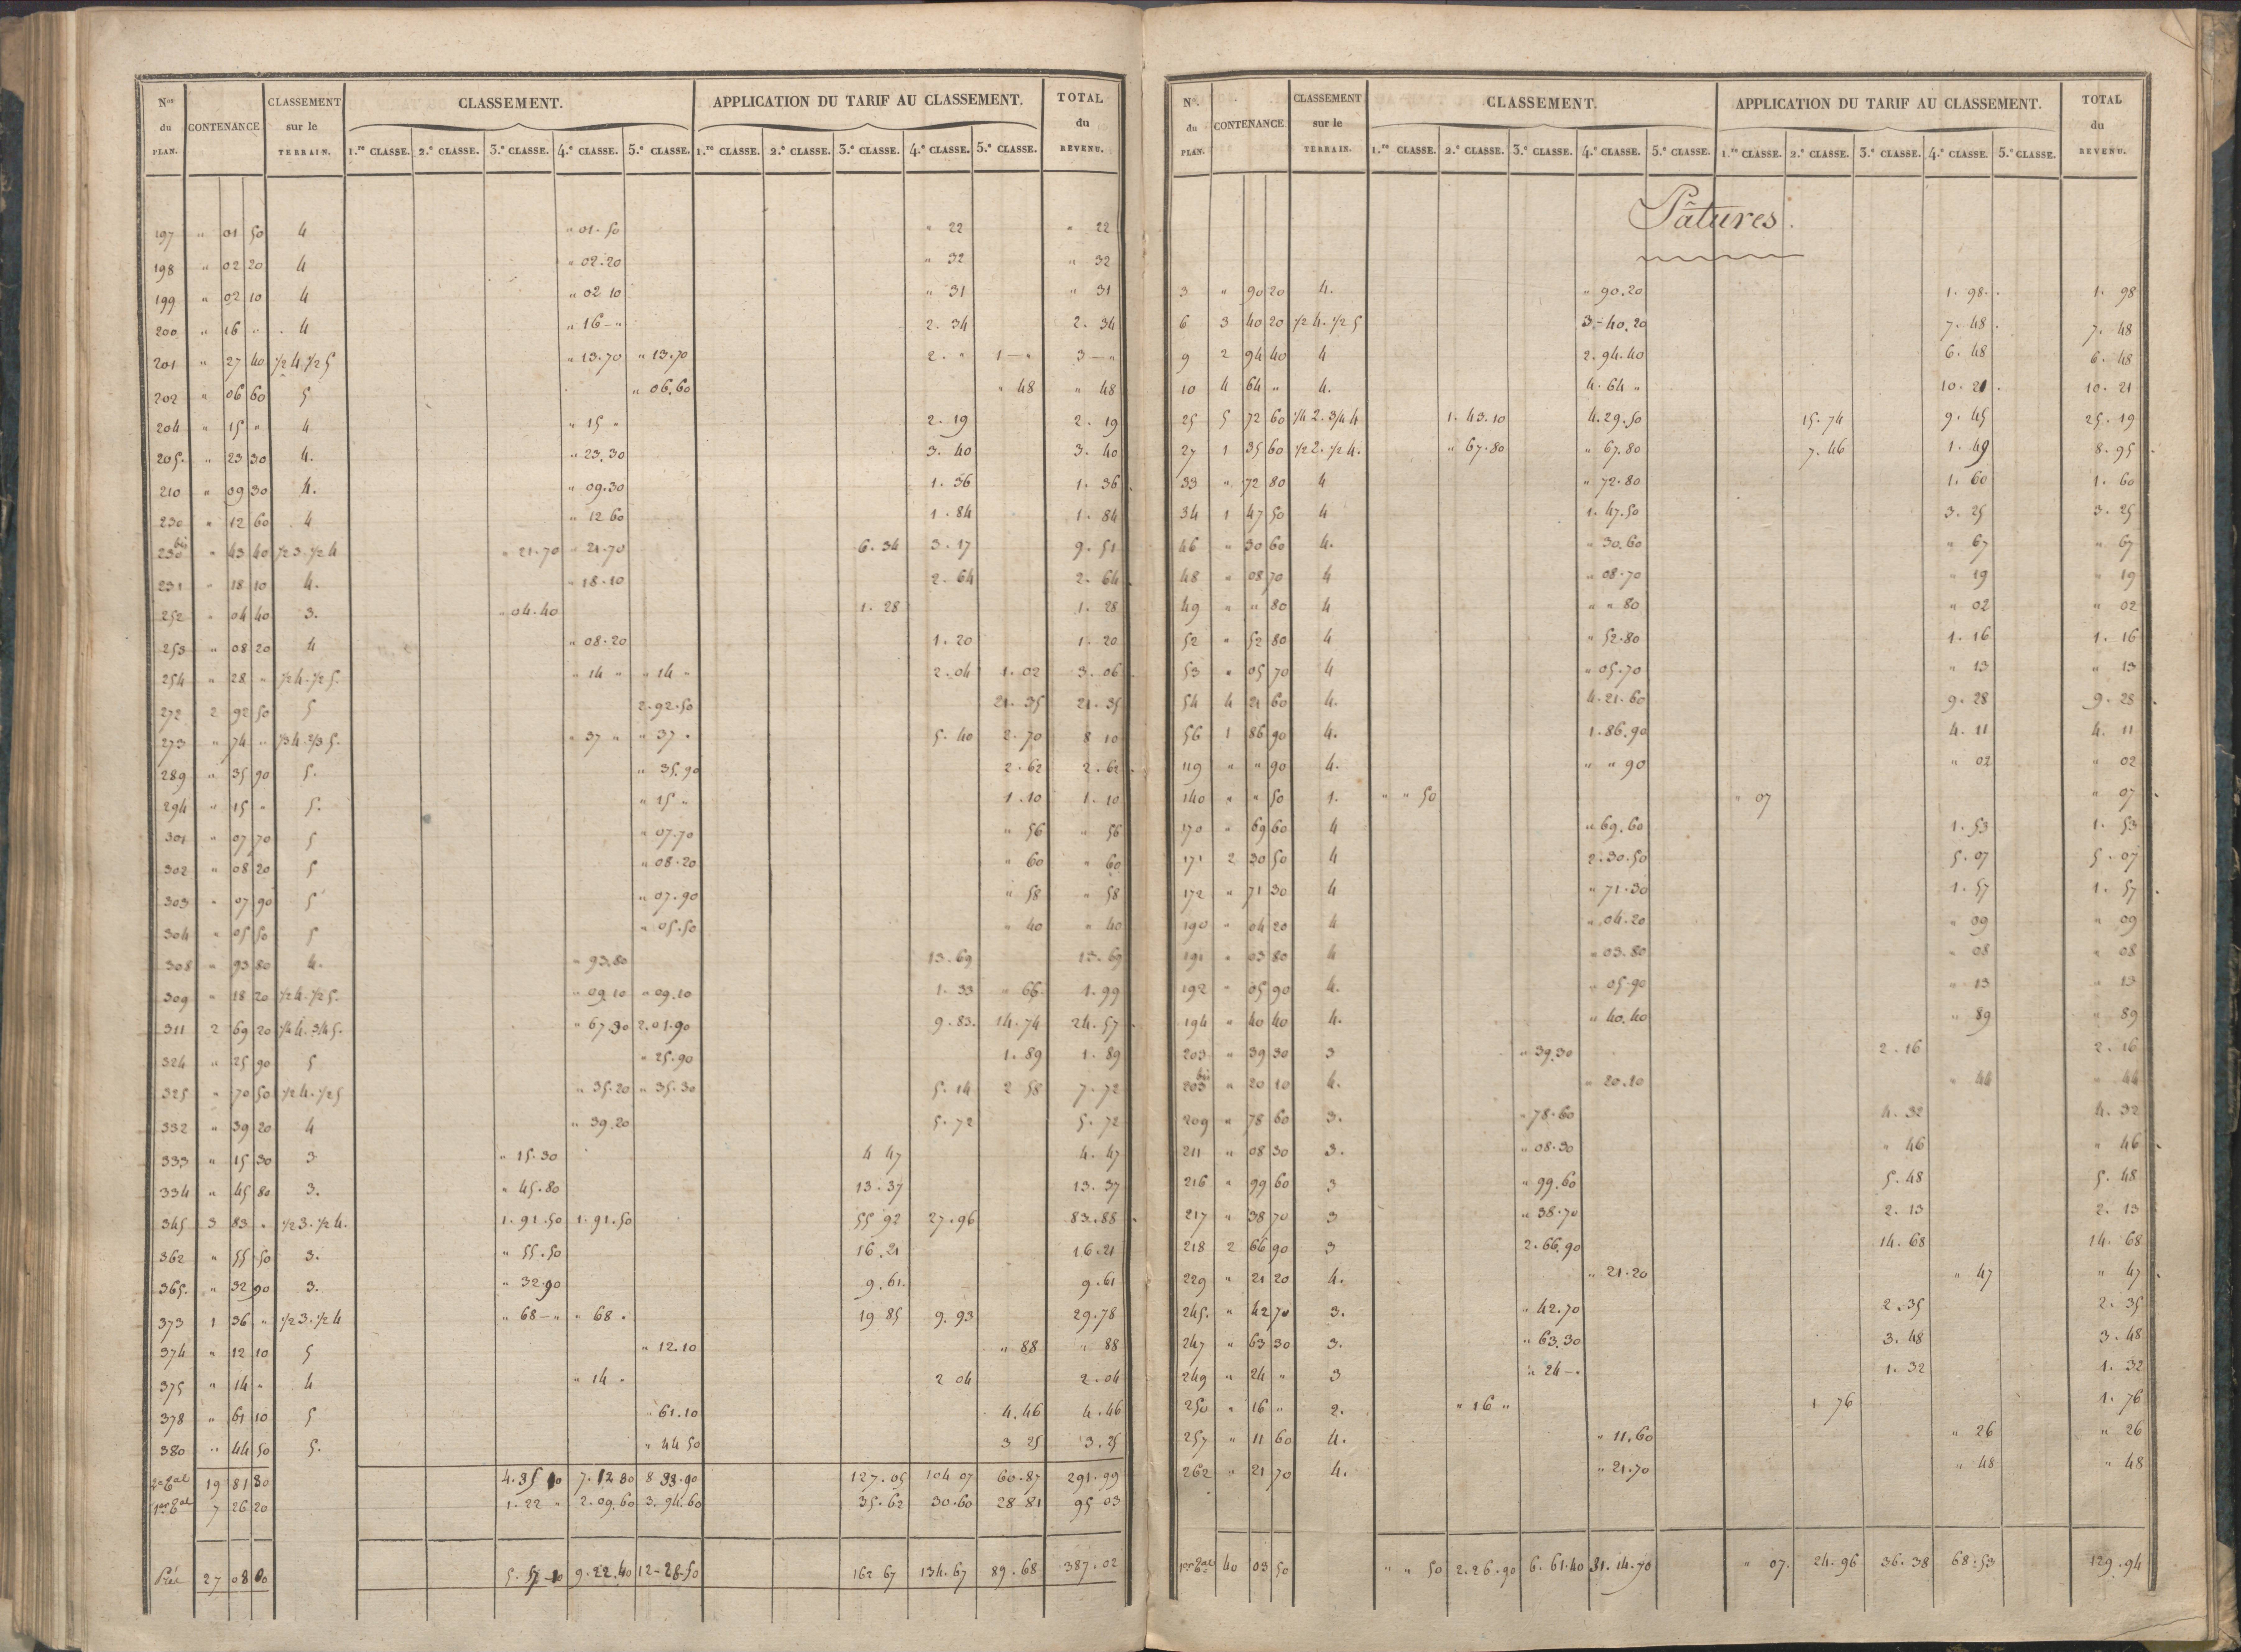 Nos du PLAN. CONTENANCE CLASSEMENT sur le TERRAIN. CLASSEMENT. APPLICATION DU TARIF AU CLASSEMENT. TOTAL du REVENU.
1.re CLASSE. 2.e CLASSE. 3.e CLASSE. 4.e CLASSE. 5.e CLASSE. 1.re CLASSE. 2.e CLASSE. 3.e CLASSE. 4.e CLASSE. 5.e CLASSE.
197 " 01 50 4 " 01.50 " 22 " 22
198 " 02 20 4 " 02.20 " 32 " 32
199 " 02 10 4 " 02 10 " 31 " 31
200 " 16 " 4 " 16 – " 2. 34 2. 34
201 " 27 40 1/2 4 1/2 5 " 13.70 " 13.70 2. " 1 – " 3 – "
202 " 06 60 5 " 06.60 " 48 " 48
204 " 15 " 4 " 15 " 2. 19 2. 19
205. " 23 30 4. " 23.30 3. 40 3. 40
210 " 09 30 4. " 09.30 1. 36 1. 36
230 " 12 60 4 " 12 60 1. 84 1. 84
230 bis " 43 40 1/2 3. 1/2 4 " 21.70 " 21.70 6. 34 3. 17 9. 51
231 " 18 10 4. " 18.10 2. 64 2. 64
252 " 04 40 3. " 04.40 1. 28 1. 28
253 " 08 20 4 " 08.20 1. 20 1. 20
254 " 28 " 1/2 4. 1/2 5. " 14 " " 14 " 2. 04 1. 02 3. 06
272 2 92 50 5 2.92.50 21. 35 21. 35
273 " 74 " " 37 " " 37 " 5. 40 2. 70 8 10
289 " 35 90 5. " 35.90 2. 62 2. 62
294 " 15 " 5. " 15 " 1. 10 1. 10
301 " 07 70 5 " 07.70 " 56 " 56
302 " 08 20 5 " 08.20 " 60 " 60
303 " 07 90 5 " 07.90 " 58 " 58
304 " 05 50 5 " 05.50 " 40 " 40
308 " 93 80 4. " 93.80 13. 69 13. 69
309 " 18 20 1/2 4. 1/2 5. " 09.10 " 09.10 1. 33 " 66 1. 99
311 2 69 20 1/4 4. 3/4 5. " 67.30 2.01.90 9. 83. 14. 74 24. 57
324 " 25 90 5 " 25.90 1. 89 1. 89
325 " 70 50 1/2 4. 1/2 5 " 35.20 " 35.30 5. 14 2 58 7. 72
332 " 39 20 4 " 39.20 5. 72 5. 72
333 " 15 30 3 " 15.30 4 47 4. 47
334 " 45 80 3. " 45.80 13. 37 13. 37
345 3 83 " 1/2 3. 1/2 4. 1.91.50 1.91.50 55 92 27. 96 83. 88
362 " 55 50 3. " 55.50 16. 21 16. 21
365. " 32 90 3. " 32.90 9. 61. 9. 61
373 1 36 " 1/2 3. 1/2 4 " 68 – " " 68 " 19 85 9. 93 29. 78
374 " 12 10 5 " 12.10 " 88 " 88
375 " 14 " 4 " 14 " 2 04 2. 04
378 " 61 10 5 " 61.10 4. 46 4. 46
380 " 44 50 5. " 44 50 3 25 3. 25
19 81 30 7.12 80 8 33.90 127. 05 104 07 60. 87 291. 99
7 26 20 1. 22 " 2.09.60 3. 94.60 35. 62 30. 60 28 81 95 03
27 08 9.22.40 12 – 28.50 162 67 134. 67 89. 68 387. 02
N.os du PLAN. CONTENANCE CLASSEMENT sur le TERRAIN. CLASSEMENT. APPLICATION DU TARIF AU CLASSEMENT. TOTAL du REVENU.
1.re CLASSE. 2.e CLASSE. 3.e CLASSE. 4.e CLASSE. 5.e CLASSE. 1.re CLASSE. 2.e CLASSE. 3.e CLASSE. 4.e CLASSE. 5.e CLASSE.
Pâtures.
3 " 90 20 4. " 90.20 1. 98. 1. 98
6 3 40 20 1/2 4. 1/2 5 3 – 40.20 7. 48. 7. 48
9 2 94 40 4 2. 94. 40 6. 48 6. 48
10 4 64 " 4. 4. 64 " 10. 21. 10. 21
25 5 72 60 1/4 2. 3/4 4 1. 43.10 4.29.50 15. 74 9. 45 25. 19
27 1 35 60 1/2 2. 1/2 4. " 67.80 " 67.80 7. 46 1. 49 8. 95
33 " 72 80 4 " 72.80 1. 60 1. 60
34 1 47 50 4 1. 47.50 3. 25 3. 25
46 " 30 60 4. " 30.60 " 67 " 67
48 " 08 70 4 " 08.70 " 19 " 19
49 " " 80 4 " " 80 " 02 " 02
52 " 52 80 4 " 52.80 1. 16 1. 16
53 " 05 70 4 " 05.70 " 13 " 13
54 4 21 60 4. 4.21.60 9. 28 9. 28
56 1 86 90 4. 1.86.90 4. 11 4. 11
119 " " 90 4. " " 90 " 02 " 02
140 " " 50 1. " " 50 " 07 " 07
170 " 69 60 4 " 69.60 1. 53 1. 53
171 2 30 50 4 2.30.50 5. 07 5. 07
172 " 71 30 4 " 71.30 1. 57 1. 57
190 " 04 20 4 " 04.20 " 09 " 09
191 " 03 80 4 " 03.80 " 08 " 08
192 " 05 90 4. " 05.90 " 13 " 13
194 " 40 40 4. " 40.40 " 89 " 89
203 " 39 30 3 " 39.30 2. 16 2. 16
203 bis " 20 10 4. " 20.10 " 44 " 44
209 " 78 60 3. " 78.60 4. 32 4. 32
211 " 08 30 3. " 08.30 " 46 " 46
216 " 99 60 3 " 99.60 5. 48 5. 48
217 " 38 70 3 " 38.70 2. 13 2. 13
218 2 66 90 3 2.66.90 14. 68 14. 68
229 " 21 20 4. " 21.20 " 47 " 47
245. " 42 70 3. " 42.70 2. 35 2. 35
247 " 63 30 3. " 63.30 3. 48 3. 48
249 " 24 " 3 " 24 – " 1. 32 1. 32
250 " 16 " 2. " 16 " 1 76 1. 76
257 " 11 60 4. " 11.60 " 26 " 26
262 " 21 70 4. " 21.70 " 48 " 48
40 03 50 " " 50 2.26.90 6. 61.40 31.14.70 " 07. 24. 96 36. 38 68. 53 129. 94